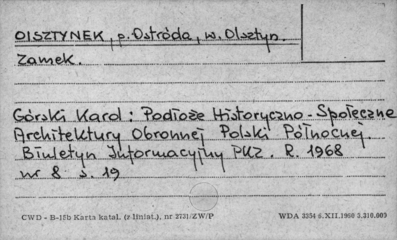 OLSZTYNEK, p. Ostróda, w. Olsztyn.
Zamek.
Górski Karol: Podłoże Historyczno-Społeczne
Architektury Obronnej Polski Północnej.
Biuletyn Informacyjny PKZ. R. 1968
nr 8 s. 19
CWD - B-15b Karta katal. (z liniat.), nr 2731/ZW/P WDA 3334 6.XII.1960 3.310.000